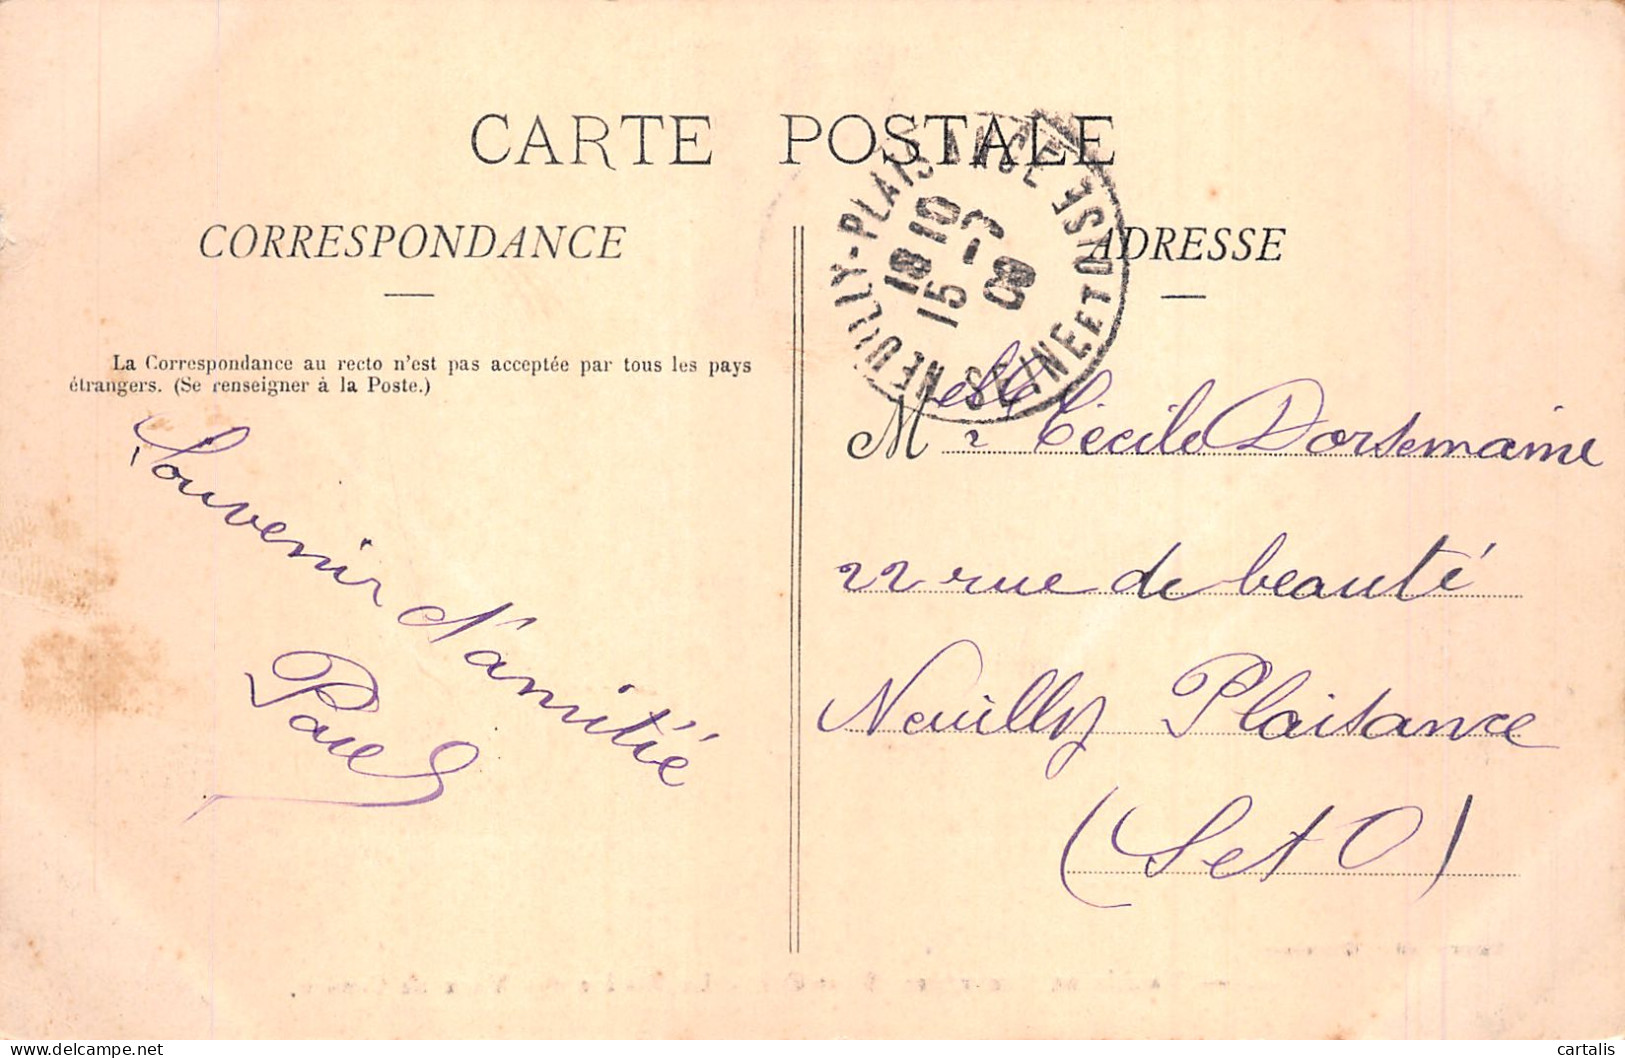 CARTE POSTALE
CORRESPONDANCE
La Correspondance au recto n'est pas acceptée par tous les pays
étrangers. (Se renseigner à la Poste.)
Souvenir d'amitié
ADRESSE
NEUILLY-PLAISANCE SEINE ET OISE
18 10
15 -7
08
Melle Cécile Dorsemaine
22 rue de beauté
Neuilly Plaisance
(S et O)
cartalis